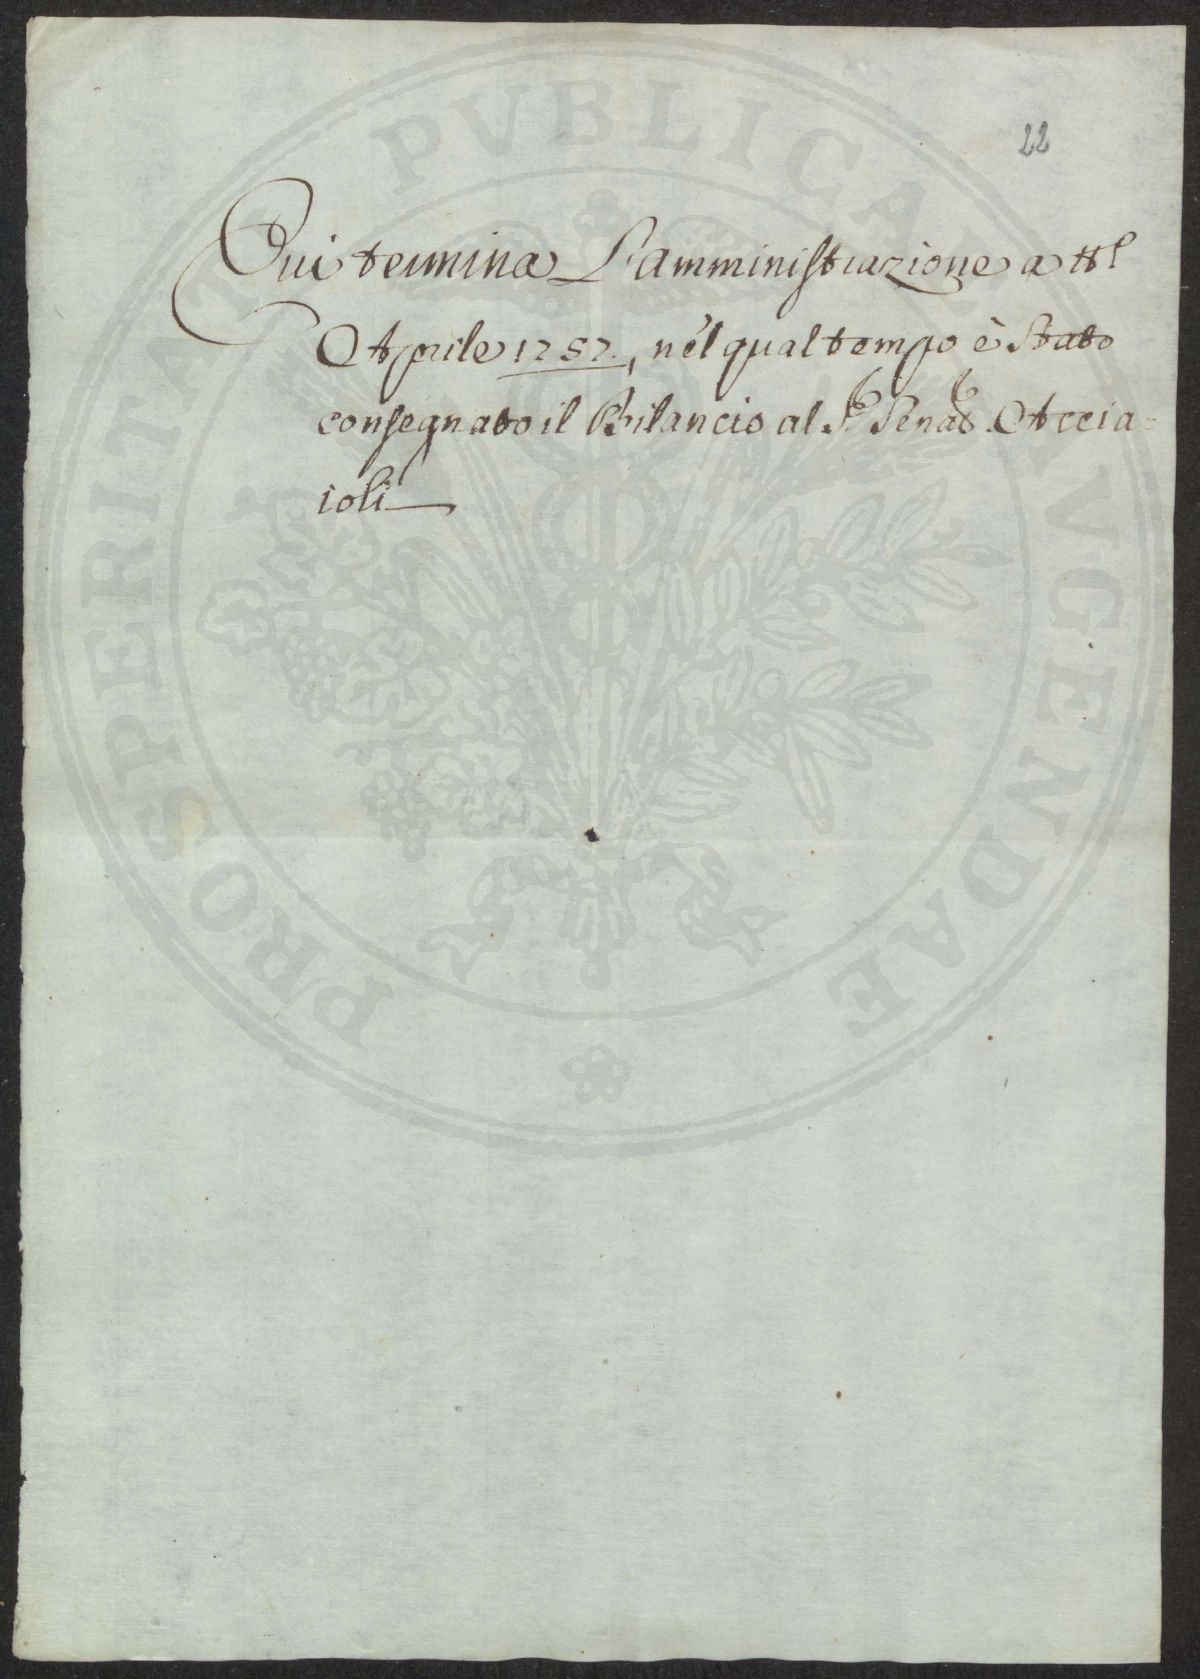 22
Qui termina L'amministrazione a ttt.o
Aprile 1757., nél qual tempo è Stato
consegnato il Bilancio al S.e Senat.e Accia=
ioli
PROSPERITATI PVBLICAE AVGENDAE